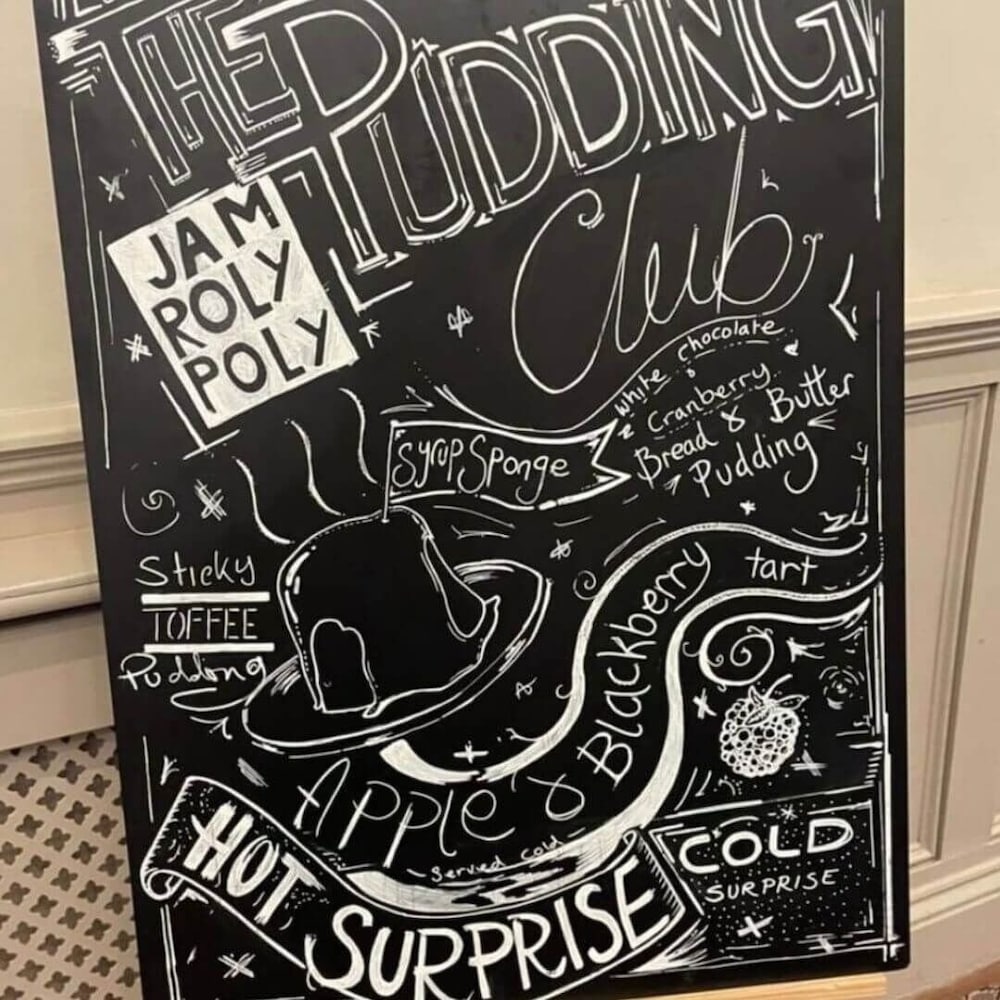 THE PUDDING
Club
JAM
ROLY
POLY
White chocolate
& Cranberry
Bread & Butter
Pudding
Syrup Sponge
Sticky
TOFFEE
Pudding
Apple & Blackberry tart
served cold
HOT SURPRISE
COLD
SURPRISE